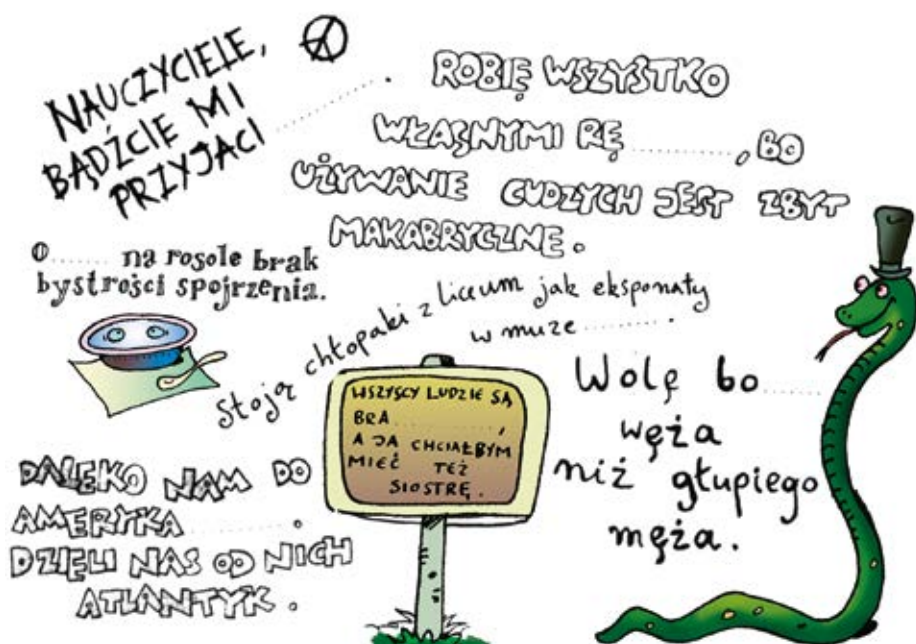 NAUCZYCIELE,
BĄDŹCIE MI
PRZYJACI ........ .
ROBIĘ WSZYSTKO
WŁASNYMI RĘ ........, BO
UŻYWANIE CUDZYCH JEST ZBYT
MAKABRYCZNE.
O ...... na rosole brak
bystrości spojrzenia.
Stoją chłopaki z liceum jak eksponaty
w muze ........ .
WSZYSCY LUDZIE SĄ
BRA ........,
A JA CHCIAŁBYM
MIEĆ TEŻ
SIOSTRĘ.
Wolę bo ......
węża
niż głupiego
męża.
DALEKO NAM DO
AMERYKA ........ .
DZIELI NAS OD NICH
ATLANTYK.